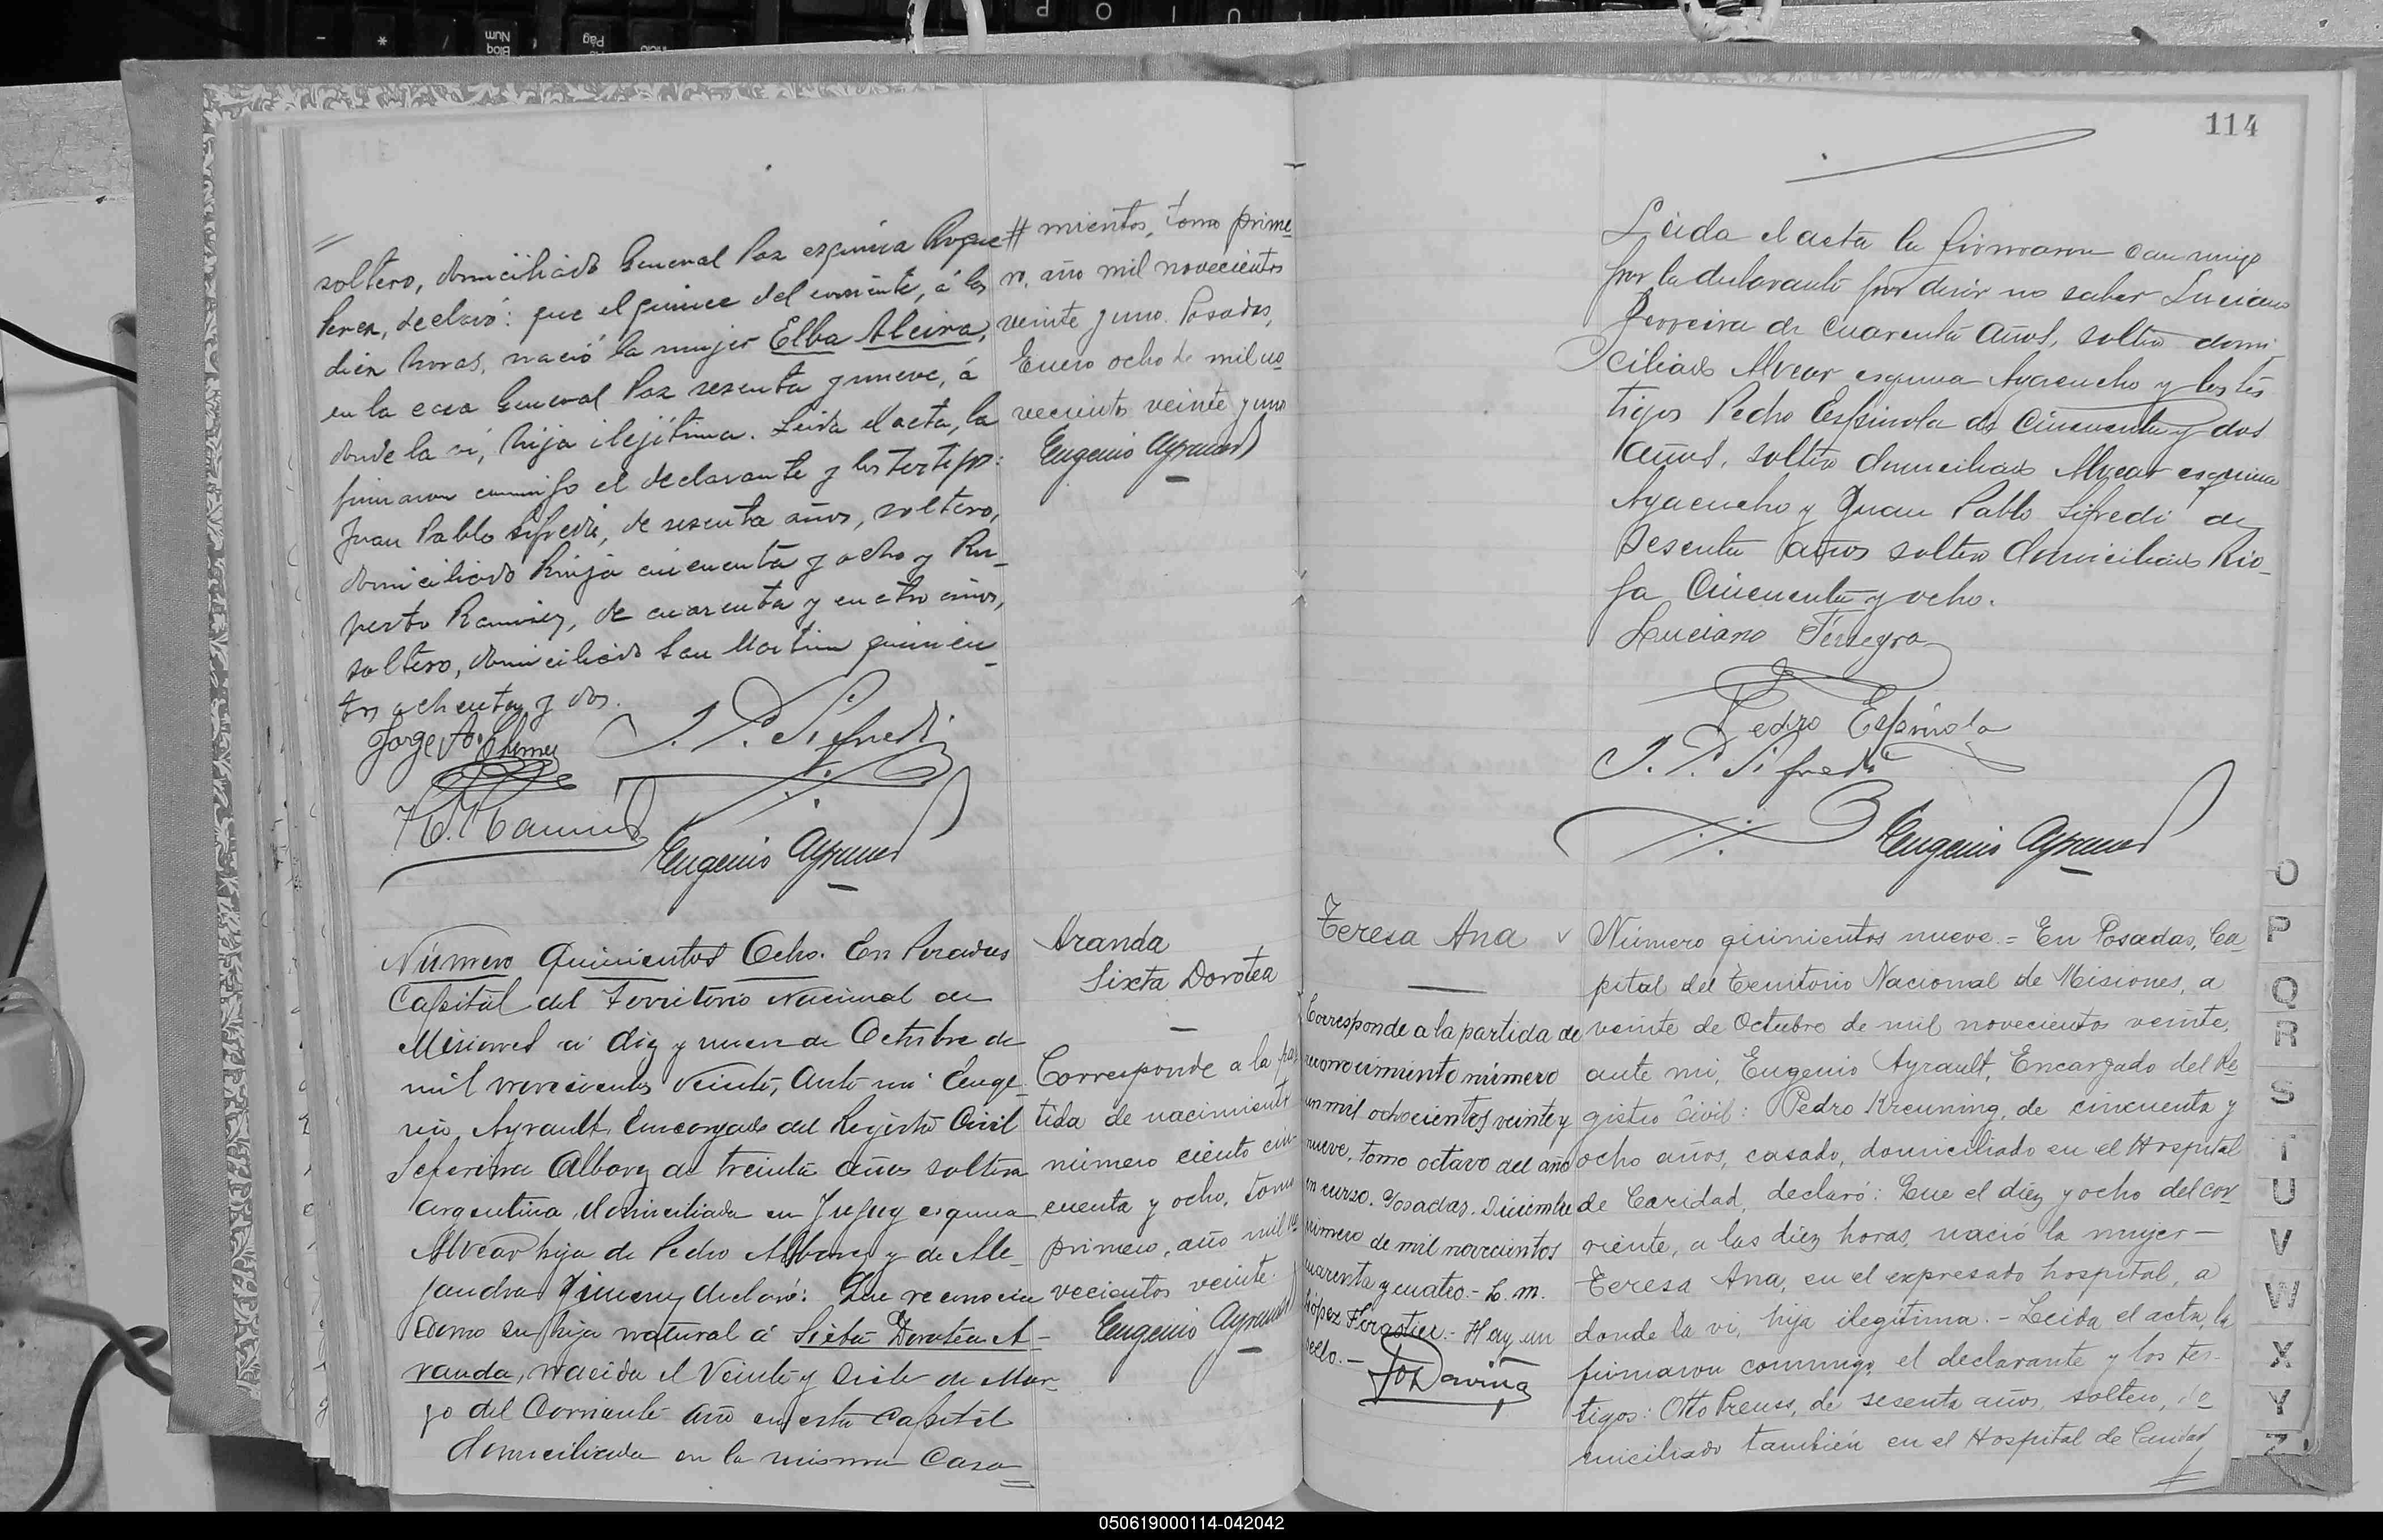 114
soltero, domiciliado General Paz esquina Roque
Perez, declaró: que el quince del corriente, á las
diez horas, nació la mujer Elba Alcira,
en la casa General Paz sesenta y nueve, á
donde la ví, hija ilejítima. Leida el acta, la
firmaron conmigo el declarante y los testigos:
Juan Pablo Sifredi, de sesenta años, soltero,
domiciliado Rioja cincuenta y ocho y Ru-
perto Ramirez, de cuarenta y cuatro años,
soltero, domiciliado San Martin quinien-
tos ochenta y dos.
J. P. Sifredi
Eugenio Ayrault
# mientos, tomo prime-
ro, año mil novecientos
veinte y uno. Posadas,
Enero ocho de mil no-
vecientos veinte y uno
Eugenio Ayrault
Número Quinientos Ocho. En Posadas
Capital del Territorio Nacional de
Misiones á diez y nueve de Octubre de
mil novecientos veinte, ante mi Euge-
nio Ayrault, Encargado del Registro Civil
Seferina Alborez de treinta años soltera
argentina, domiciliada en Jujuy esquina
Alvear hija de Pedro Alborez y de Ale-
jandra Jimenez declaró: Que reconocia
como su hija natural á Sixta Dorotea A-
randa, nacida el Veinte y siete de Mar-
zo del Corriente año en esta Capital
domiciliada en la misma Casa
Aranda
Sixta Dorotea
Corresponde a la par-
tida de nacimiento
número ciento cin-
cuenta y ocho, tomo
primero, año mil no-
vecientos veinte.
Eugenio Ayrault
Leida el acta la firmaron conmigo
por la declarante por decir no saber Luciano
Ferreira de cuarenta años, soltero domi-
ciliado Alvear esquina Ayacucho y los tes-
tigos Pedro Espinola de Cincuenta y dos
años, soltero domiciliado Alvear esquina
Ayacucho y Juan Pablo Sifredi de
Sesenta años soltero domiciliado Rio-
ja Cincuenta y ocho.
Luciano
Pedro Espínola
J. P. Sifredi
Eugenio Ayrault
Teresa Ana
Corresponde a la partida de
reconocimiento número
un mil ochocientos veinte y
nueve, tomo octavo del año
en curso. Posadas. Diciembre
primero de mil novecientos
cuarenta y cuatro.- L. M.
López Forastier.- Hay un
sello.-
Número quinientos nueve.= En Posadas, Ca-
pital del Territorio Nacional de Misiones, a
veinte de Octubre de mil novecientos veinte,
ante mi, Eugenio Ayrault, Encargado del Re-
gistro Civil: Pedro Kreuning, de cincuenta y
ocho años, casado, domiciliado en el Hospital
de Caridad, declaró: Que el diez y ocho del cor-
riente, a las diez horas, nació la mujer-
Teresa Ana, en el expresado hospital, a
donde la vi, hija ilegítima.- Leida el acta, la
firmaron conmigo, el declarante y los tes-
tigos: Otto Preuss, de sesenta años, soltero, do-
miciliado también en el Hospital de Caridad
O
P
Q
R
S
T
U
V
W
X
Y
Z
050619000114-042042